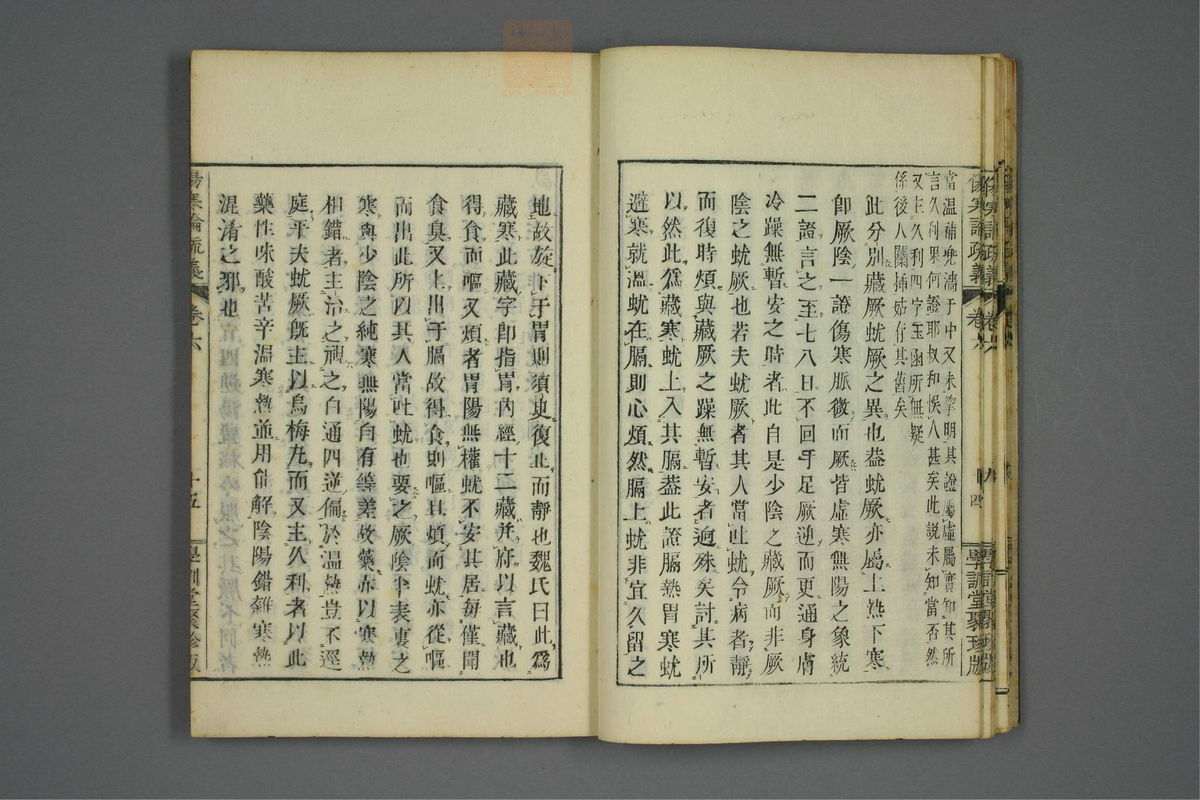 傷寒論疏義 卷六 十四 學訓堂聚珍版
當溫補兼濇于中又未掌明其證屬虛屬實知其所
言久利果何證耶叔和悞入甚矣此説未知當否然
又主久利四字玉函所無疑
係後人闌挿姑存其舊矣
此分別藏厥蚘厥之異也葢蚘厥亦屬上熱下寒
卽厥陰一證傷寒脈微而厥皆虛寒無陽之象統
二證言之至七八日不回手足厥逆而更通身膚
冷躁無暫安之時者此自是少陰之藏厥而非厥
陰之蚘厥也若夫蚘厥者其人當吐蚘令病者靜
而復時煩與藏厥之躁無暫安者逈殊矣討其所
以然此爲藏寒蚘上入其膈葢此證膈熱胃寒蚘
避寒就溫蚘在膈則心煩然膈上蚘非宜久留之
地故旋下于胃則須臾復止而靜也魏氏曰此爲
藏寒此藏字卽指胃內經十二藏并府以言藏也
得食而嘔又煩者胃陽無權蚘不安其居每僅聞
食臭又上出于膈故得食則嘔且煩而蚘亦從嘔
而出此所以其人當吐蚘也要之厥陰半表裏之
寒與少陰之純寒無陽自有等差故藥亦以寒熱
相錯者主治之視之白通四逆偏於溫熱豈不逕
庭乎夫蚘厥旣主以烏梅丸而又主久利者以此
藥性味酸苦辛溫寒熱並用能解陰陽錯雜寒熱
混淆之邪也
傷寒論疏義 卷六 十五 學訓堂聚珍版